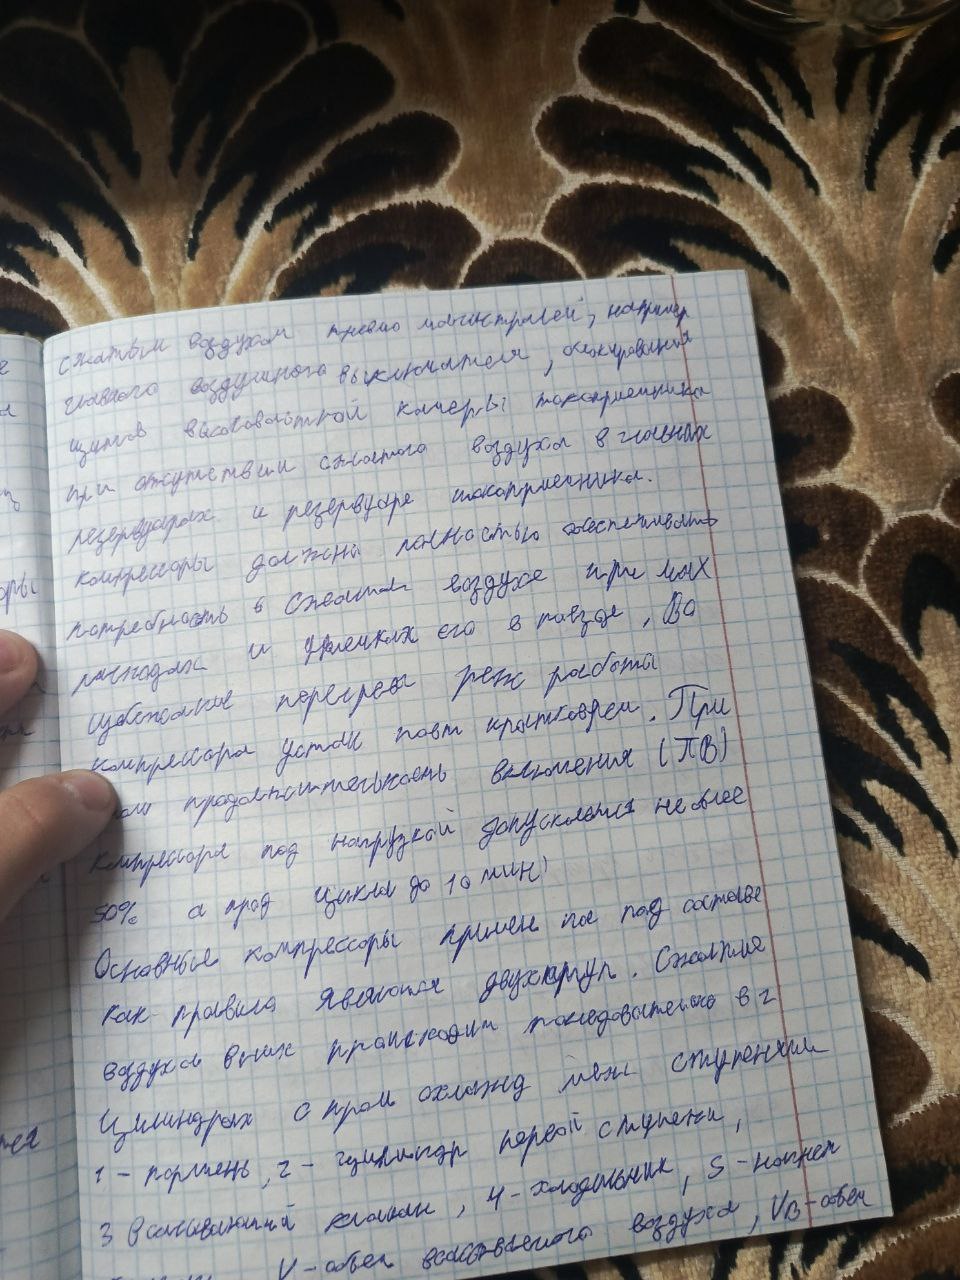 сжатым воздухом пневмо магистралей, например
главного воздушного выключателя, блокирования
щитов высоковольтной камеры токоприемника
при отсутствии сжатого воздуха в главных
резервуарах и резервуаре токоприемника.
компрессоры должны полностью обеспечивать
потребность в сжатом воздухе при мах
расходах и утечках его в поезде, Во
избежание перегрева реж работы
компрессора устан повт кратковрем. При
этом продолжительность включения (ПВ)
компрессора под нагрузкой допускается не более
50% а прод цикла до 10 мин)
Основные компрессоры примен на под составе
как правило являются двухступ. Сжатие
воздуха в них происходит последовательно в 2
цилиндрах с пром охлажд меж ступенями
1 - поршень, 2 - цилиндр первой ступени,
3 всасывающий клапан, 4 - холодильник, 5 - нагнет
V - объем всасываемого воздуха, VВ - объем